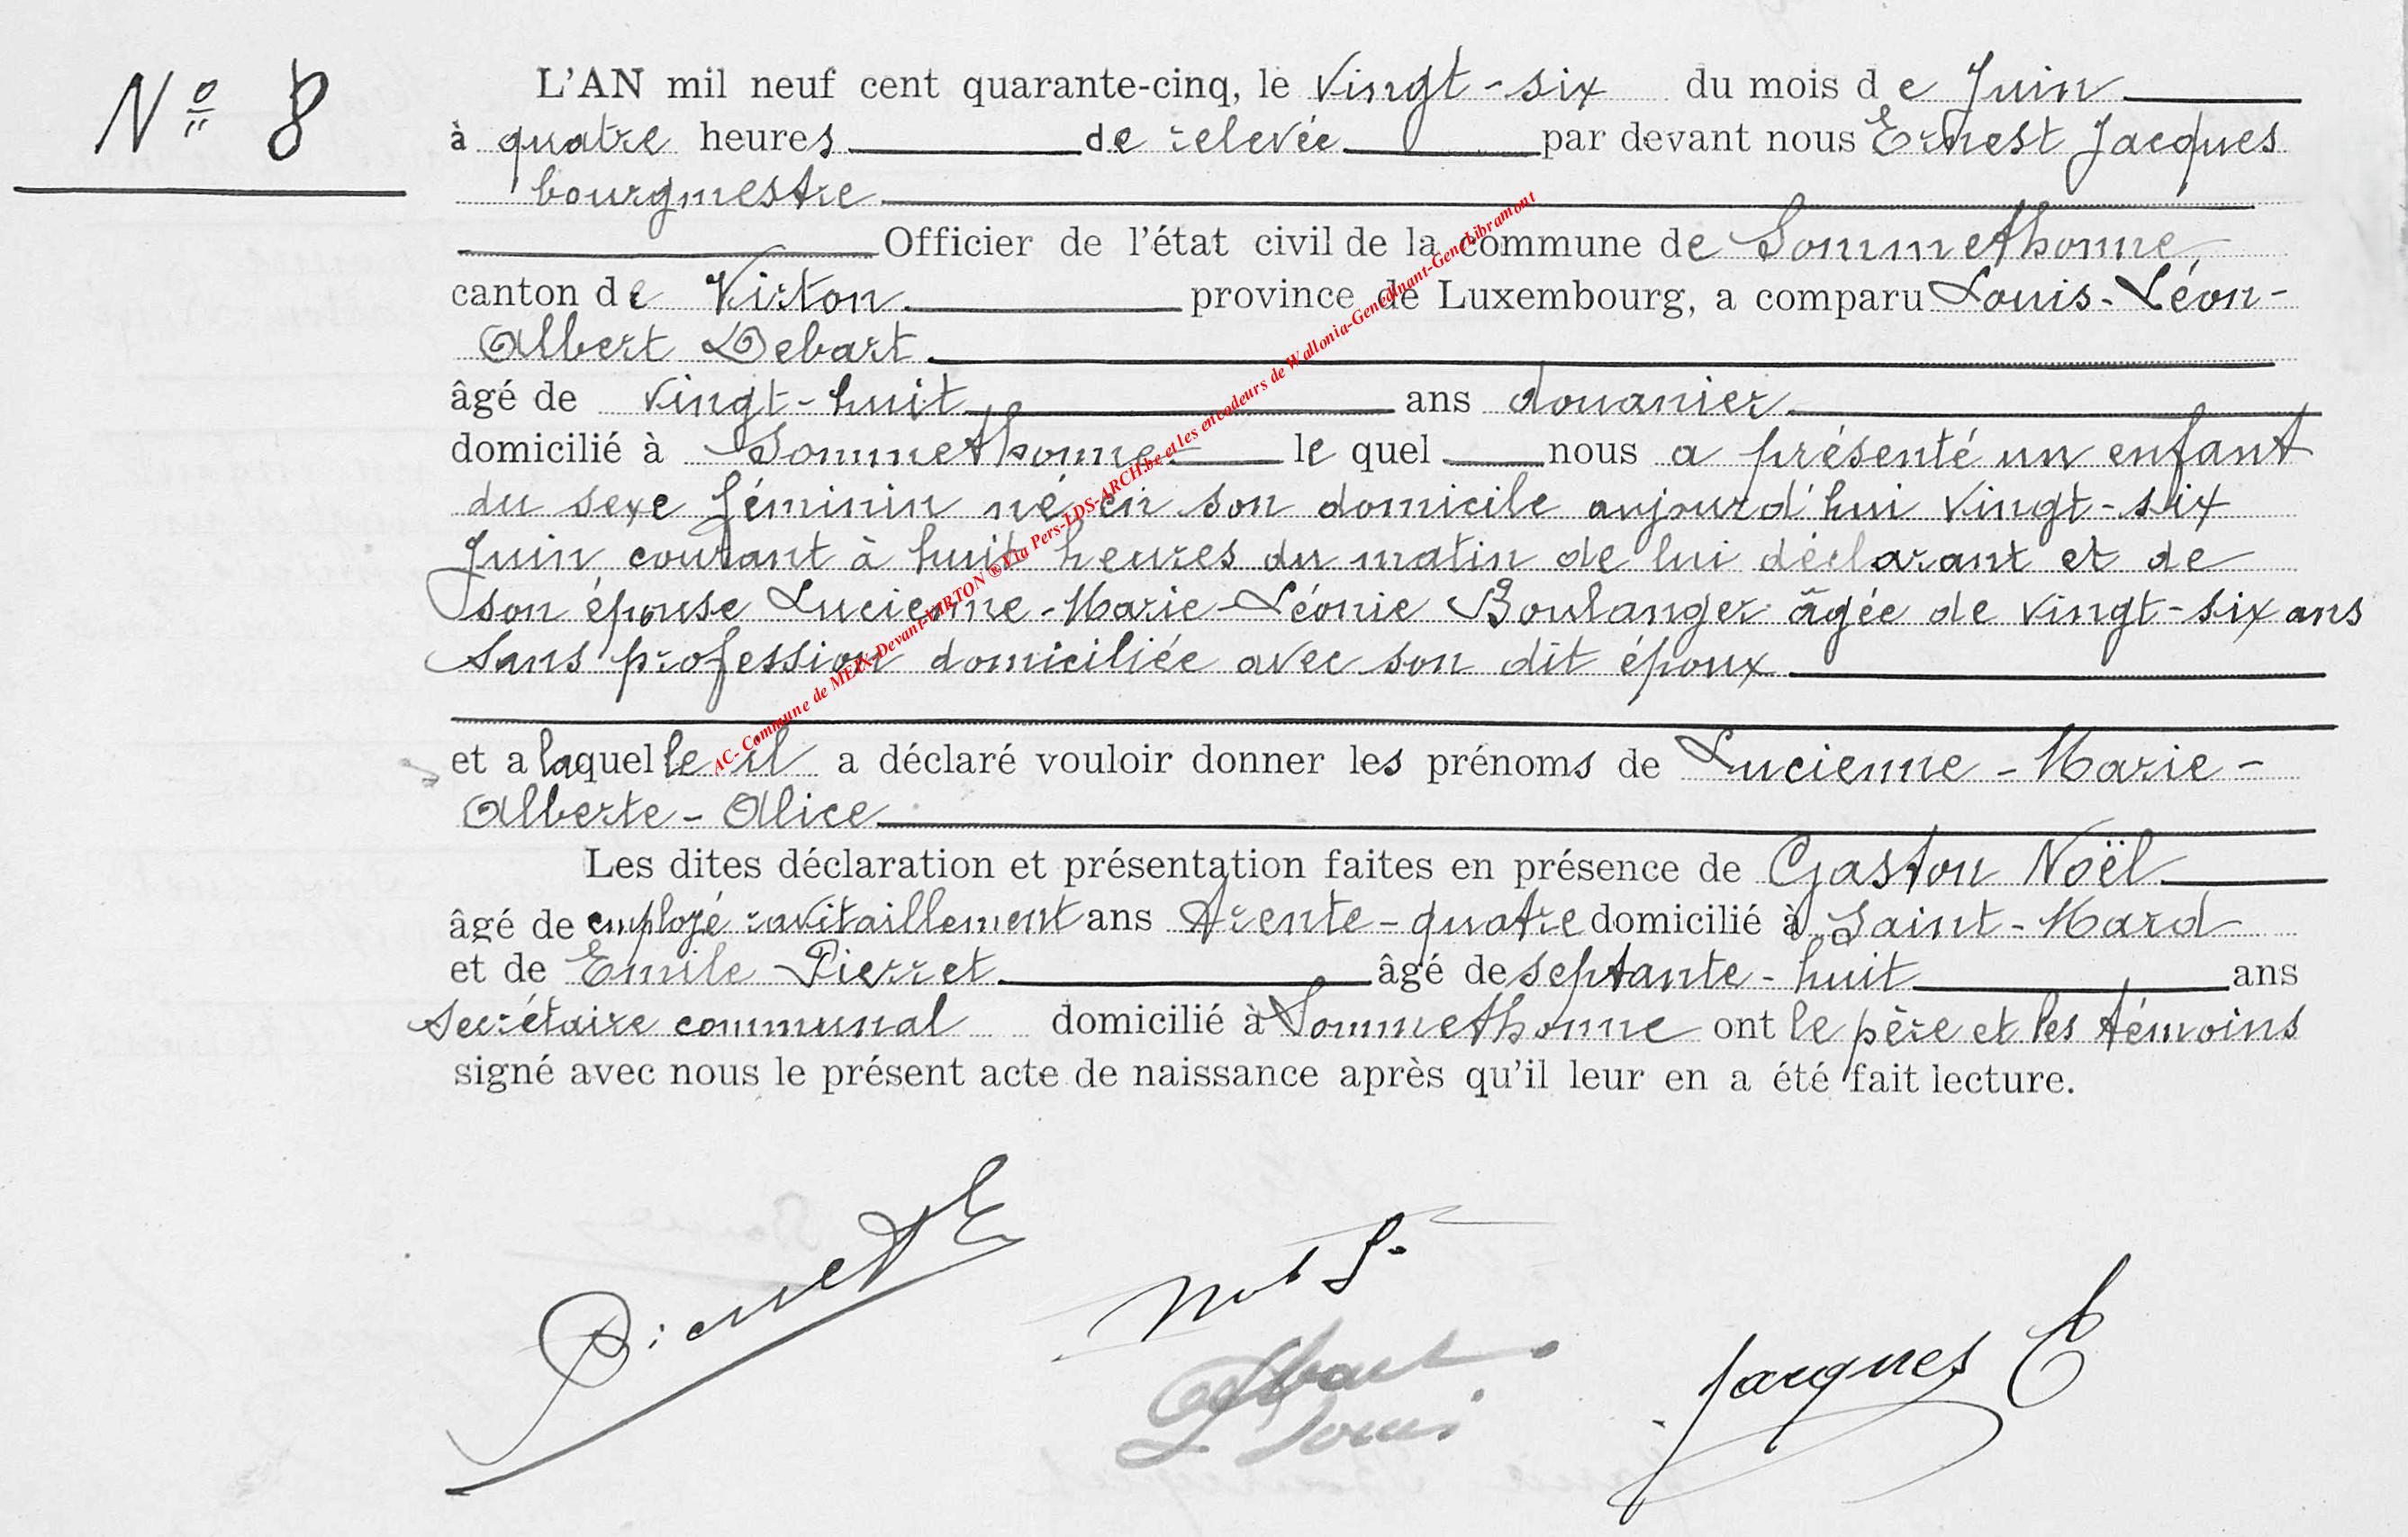 Nº 8
L'AN mil neuf cent quarante-cinq, le vingt-six du mois de Juin
à quatre heures de relevée par devant nous Ernest Jacques
bourgmestre
Officier de l'état civil de la commune de Sommethonne,
canton de Virton province de Luxembourg, a comparu Louis-Léon-
Albert Debart
âgé de vingt-huit ans douanier
domicilié à Sommethonne le quel nous a présenté un enfant
du sexe féminin né en son domicile aujourd'hui vingt-six
Juin courant à huit heures du matin de lui déclarant et de
son épouse Lucienne-Marie-Léonie Boulanger âgée de vingt-six ans
sans profession domiciliée avec son dit époux
et a laquelle il a déclaré vouloir donner les prénoms de Lucienne-Marie-
Alberte-Alice
Les dites déclaration et présentation faites en présence de Gaston Noël
âgé de employé ravitaillement ans trente-quatre domicilié à Saint-Mard
et de Emile Pierret âgé de septante-huit ans
secrétaire communal domicilié à Sommethonne ont le père et les témoins
signé avec nous le présent acte de naissance après qu'il leur en a été fait lecture.
AC- Commune de MEIX-Devant-VIRTON ® Via Pers-LDS-ARCH.be et les encodeurs de Wallonia-Genedinant-GeneLibramont
Pierret E
Debart
Louis
Jacques E